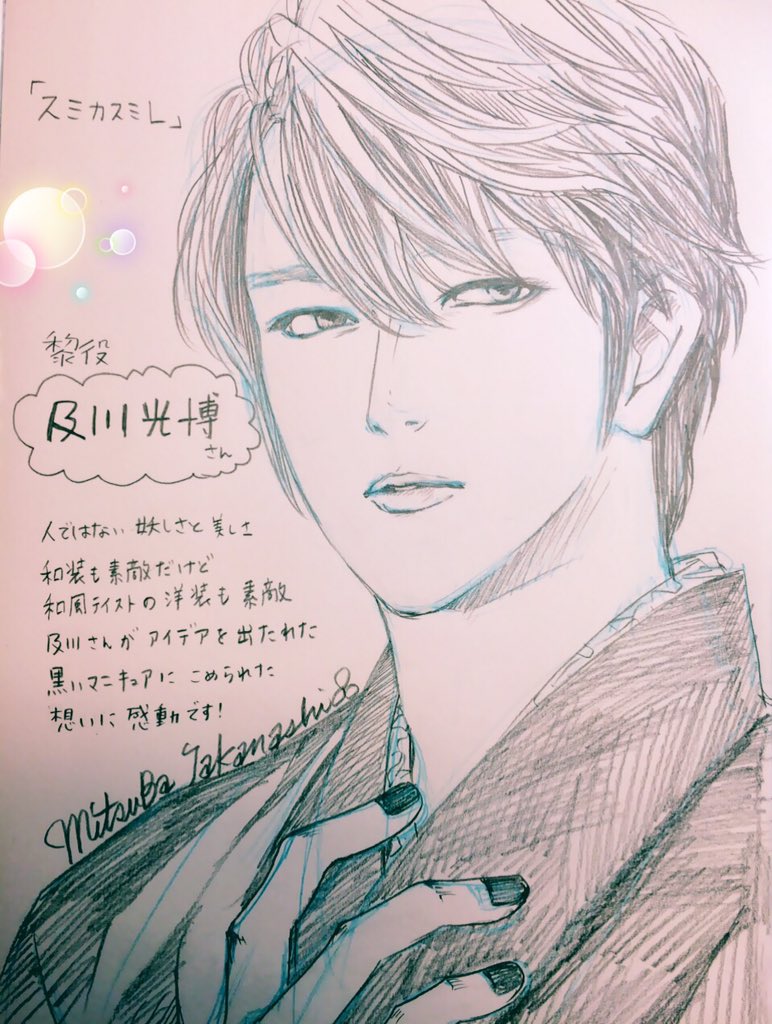 「スミカスミレ」
黎役
及川光博
さん
人ではない 妖しさと 美しさ
和装も素敵だけど
和風テイストの洋装も 素敵
及川さんが アイデアを 出たれた
黒いマニキュアに こめられた
想いに 感動です!
Mitsuba Takanashi